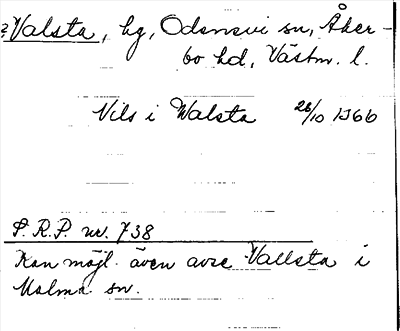 ?Valsta, hg, Odensvi sn, Åker-
bo hd, Västm. l.
Nils i Walsta 26/10 1366
S.R.P. nr. 738
Kan möjl. även avse Vallsta i
Malma sn.